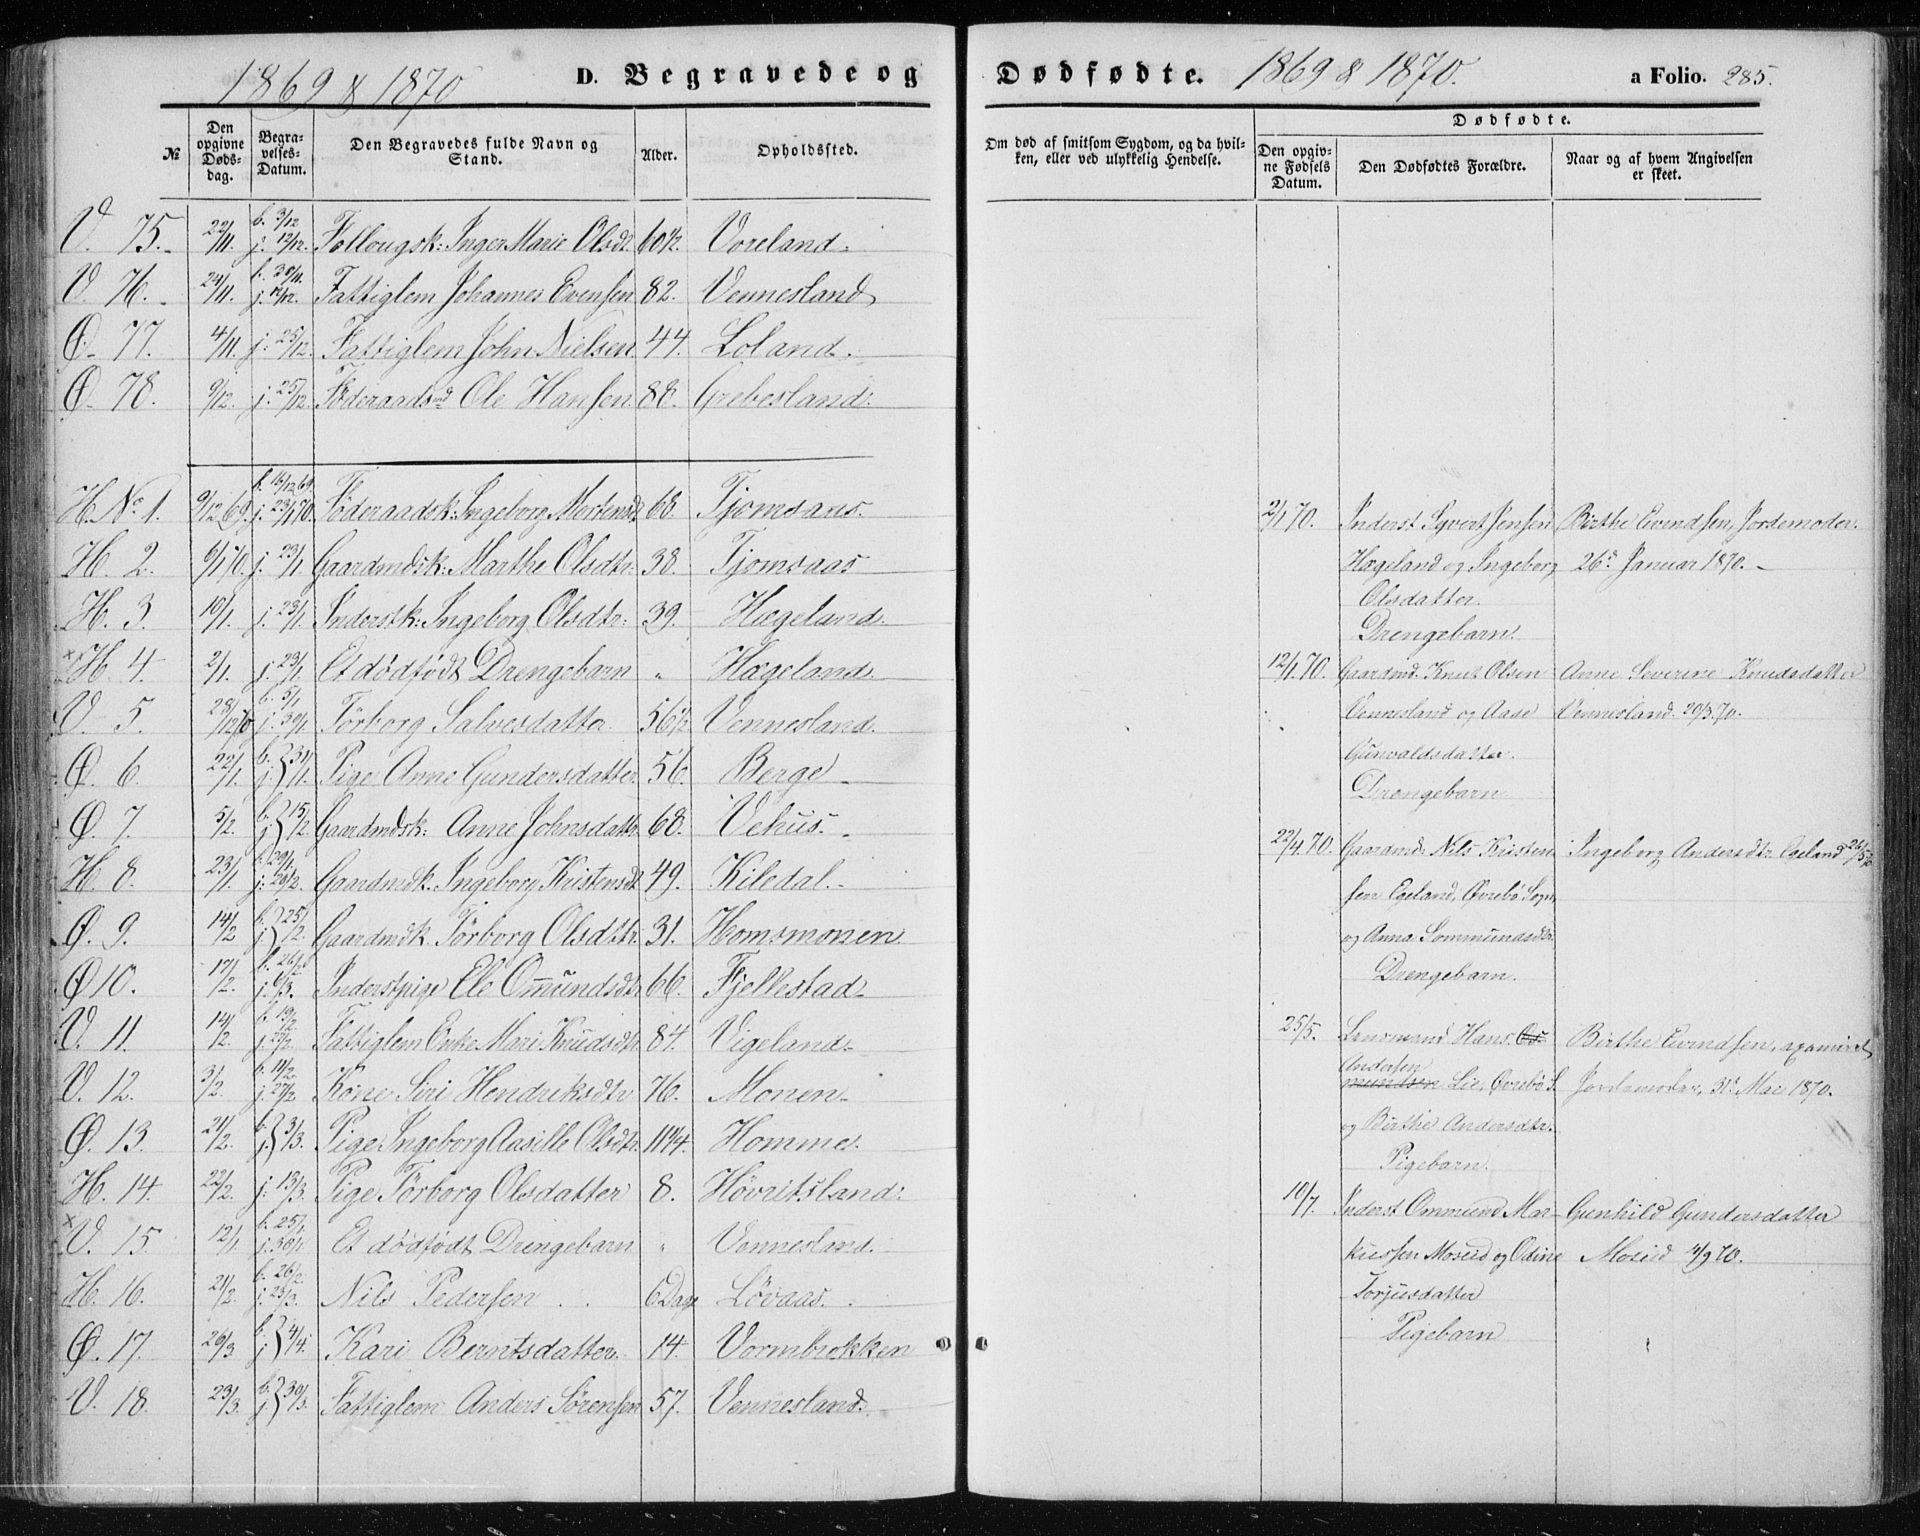 1869 & 1870
D. Begravede og
Dødfødte.
1869 & 1870.
a Folio. 285.
№
Den opgivne Døds-dag.
Begra-velses-Datum.
Den Begravedes fulde Navn og Stand.
Alder.
Opholdssted.
Om død af smitsom Sygdom, og da hvil-ken, eller ved ulykkelig Hendelse.
Dødfødte.
Den opgiv-ne Fødsels Datum.
Den Dødfødtes Forældre.
Naar og af hvem Angivelsen er skeet.
V. 75. 22/11. b. 3/12 j. 12/12. Follougsk: Inger Marie Olsdt. 60 1/2. Voreland.
V. 76. 24/11. j. 12/12. Fattiglem Johannes Evensen 82. Vennesland
Ø. 77. 4/11. j. 25/12. Fattiglem John Nielsen 44. Loland.
Ø. 78. 9/12. j. 25/12. Føderaadsmd Ole Hansen. 88. Grebesland.
H. No 1. 9/12 69. b. 16/12 69. j. 23/1 70. Føderaadsk: Ingeborg Mortensd. 68. Tjomsaas.
H. 2. 6/1 70. j. 23/1. Gaardmdsk: Marthe Olsdtr: 38. Tjomsaas
H. 3. 10/1. j. 23/1. Inderstk: Ingeborg Olsdtr: 39. Hægeland.
× H. 4. 2/1. j. 23/1. Et dödfödt Drengebarn " Hægeland.
V. 5. b. 5/1 j. 30/1. Törborg Salvesdatter. 56 1/2 Vennesland.
Ø. 6. 22/1. b. j. } 31/1. Pige Anne Gundersdatter. 56. Berge
Ø. 7. 5/2. b. j. } 15/2. Gaardmdsk: Anne Johnsdattr. 68. Vehus.
H. 8. 23/1. b. 29/1. j. 26/2. Gaardmdk. Ingeborg Kristensdt. 49. Kiledal.
Ø. 9. 14/2 b. j. } 25/2. Gaardmdk. Törborg Olsdtr. 31. Homsmonen.
Ø 10. 17/2. b. 26/2 j. 6/3. Inderstpige Ele Omundsdtr. 66. Fjellestad
V. 11. 14/2. b. 19/2. j. 27/2. Fattiglem Enke Mari Knudsdtr. 84. Vigeland.
V. 12. 3/2. b. 11/2. j. 27/2 Kone Siri Hendriksdtr 76. Monen.
Ø. 13. 21/2. b. j. } 3/3. Pige Ingeborg Aasille Olsdtr. 11 1/4. Homme.
H. 14. 22/2. j. 13/3. Pige Törborg Olsdatter 8. Hövritsland.
× V. 15. 12/1. b. 25/1 j. 30/1. Et dödfödt Drengebarn " Vennesland.
H. 16. 21/2. b. 26/2. j. 23/3. Nils Pedersen 6 Dage Lövaas.
Ø. 17. 26/3. b. j. } 4/4. Kari Berntsdatter. 14. Vormbrokken
V. 18. 23/3. b. j. } 30/3. Fattiglem Anders Sörensen 57. Vennesland.
2/1 70. Inderst Syvert Jensen Birthe Evindsen, Jordemoder.
Hægeland og Ingeborg 26d Januar 1870.
Olsdatter.
Drengebarn.
12/1. 70. Gaardmd. Knut Olsen Anne Severine Knudsdatter
Vennesland og Aase Vennesland. 20/3. 70.
Gunvaldsdatter.
Drengebarn
22/4. 70. Gaardmd. Nils Kristen Ingeborg Andersdtr. Egeland
sen Egeland, Øvrebö Sogn,
og Anna Sommundsdtr.
Drengebarn.
25/5. Lensmand Hans Birthe Evindsen, examinet
Andersen
mundsen Lie, Øvrebö S. Jordemoder, 31t Mai 1870.
og Birthe Andersdtr.
Pigebarn.
10/7. Inderst Ommund Mar Gunhild Gundersdatter
kussen Moseid og Odine Moseid 4/9 70.
Torjusdatter
Pigebarn